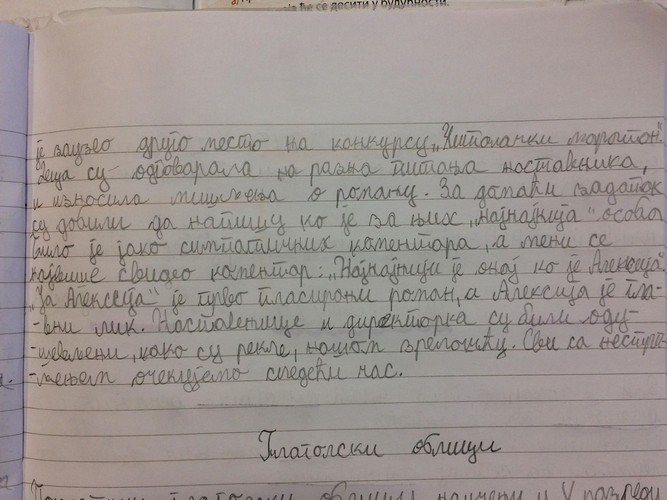 ја ће се десити у будућности.
је заузео друго место на конкурсу „Читалачки маратон".
Деца су одговарала на разна питања наставника,
и износила мишљења о роману. За домаћи задатак
су добили да напишу ко је за њих „најнајнија" особа
било је јако симпатичних коментара, а мени се
највише свидео коментар: „Најнајнији је онај ко је Алексија"
„За Алексеја" је прво пласирани роман, а Алексија је гла-
-вни лик. Наставенице и директорка су били оду-
-шевљени, како су рекле, нашом зрелошћу. Сви са нестрп-
-љењем очекујемо следећи час.
Глаголски облици
глаголски облици научени у V разреду